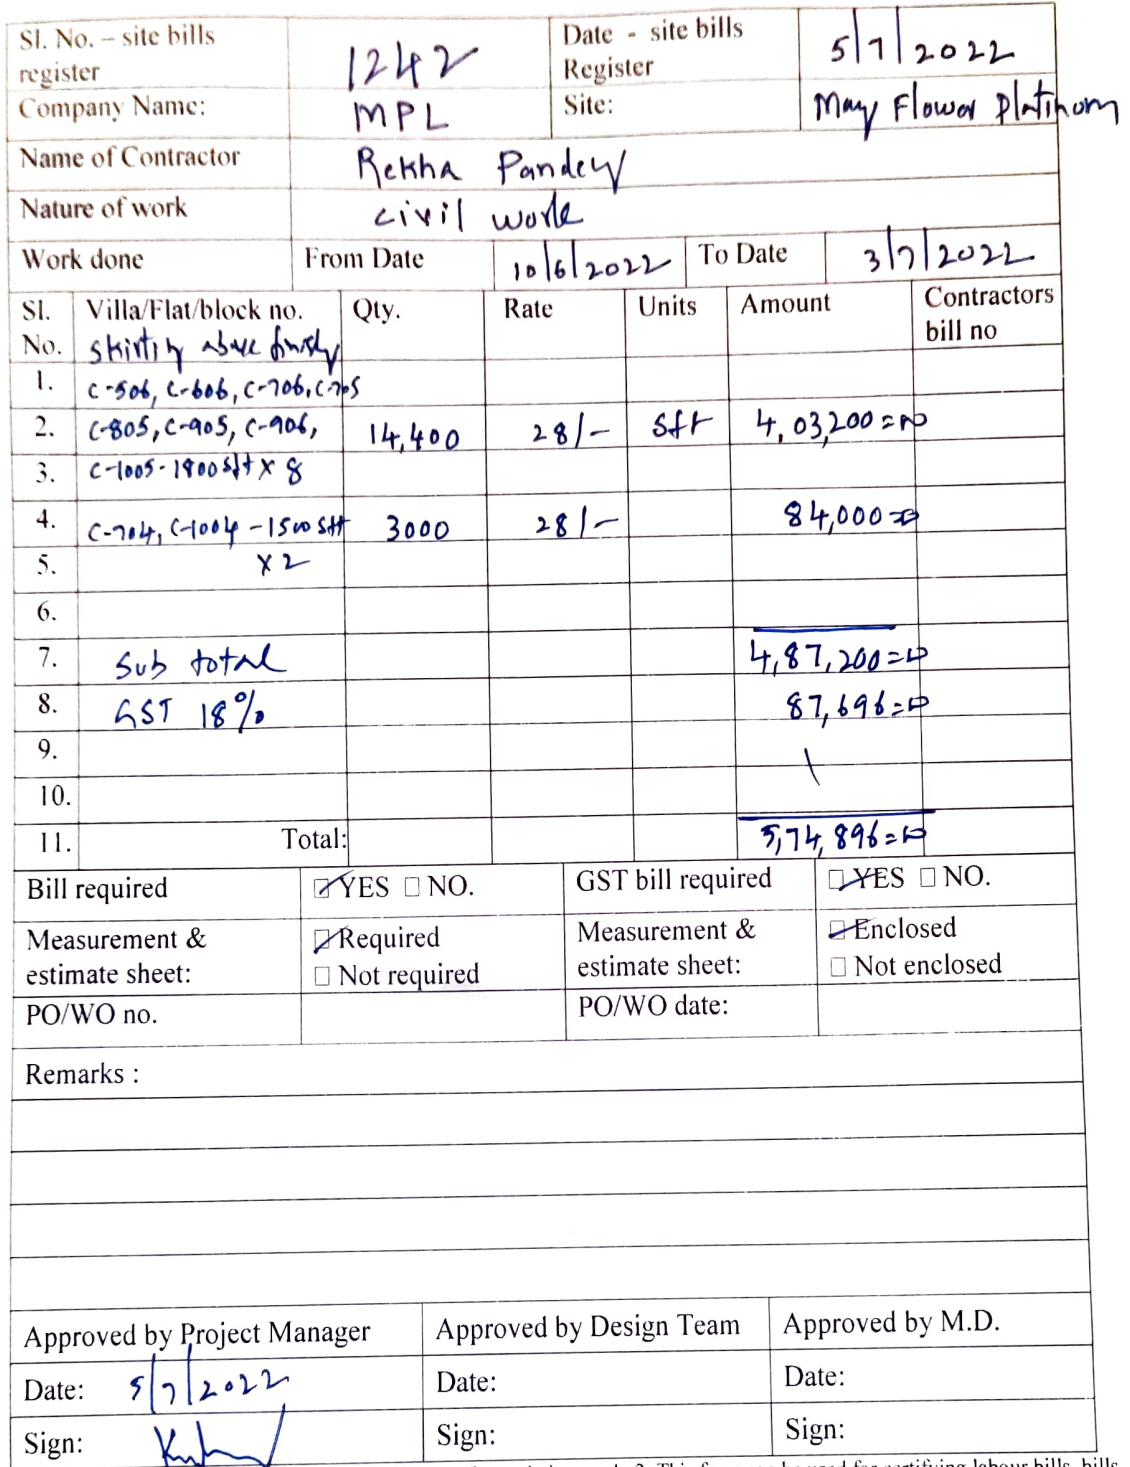 Sl. No. – site bills register 1242 Date - site bills Register 5/7/2022
Company Name: MPL Site: May Flower Platinum
Name of Contractor Rekha Pandey
Nature of work civil work
Work done From Date 10/6/2022 To Date 3/7/2022
Sl. No. Villa/Flat/block no. Qty. Rate Units Amount Contractors bill no
skirting above finishy
1. C-506, C-606, C-706, C-705
2. C-805, C-905, C-906, 14,400 28/- Sft 4,03,200=00
3. C-1005-1800 Sft x 8
4. C-704, C-1004 - 1500 Sft 3000 28/- 84,000=00
5. x 2
6.
7. Sub total 4,87,200=00
8. GST 18% 87,696=00
9. \
10.
11. Total: 5,74,896=00
Bill required ☑ YES ☐ NO. GST bill required ☑ YES ☐ NO.
Measurement & estimate sheet: ☑ Required ☐ Not required Measurement & estimate sheet: ☑ Enclosed ☐ Not enclosed
PO/WO no. PO/WO date:
Remarks :
Approved by Project Manager Approved by Design Team Approved by M.D.
Date: 5/7/2022 Date: Date:
Sign: Sign: Sign: